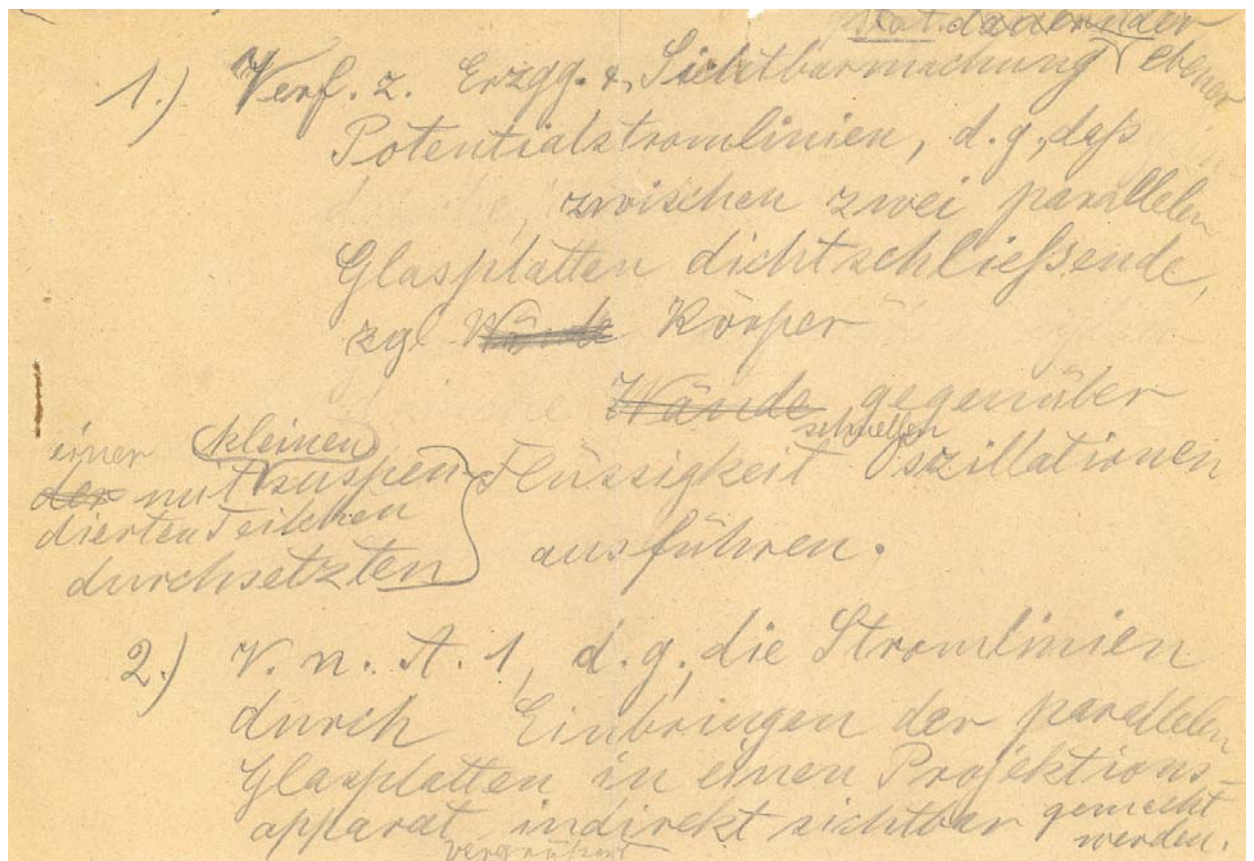 stat. dauernder
1.) Verf. z. Erzgg. & Sichtbarmachung ebener
Potentialstromlinien, d.g., daß
zwischen zwei parallelen
Glasplatten dichtschließende,
zgl. Wände Körper
Wände gegenüber
einer kleinen
der mit suspen-
dierten Teilchen
durchsetzten
Flüssigkeit schnellen Oszillationen
ausführen.
2.) V. n. A. 1, d. g., die Stromlinien
durch Einbringen der parallelen
Glasplatten in einen Projektions-
apparat indirekt sichtbar gemacht
vergrößert werden.